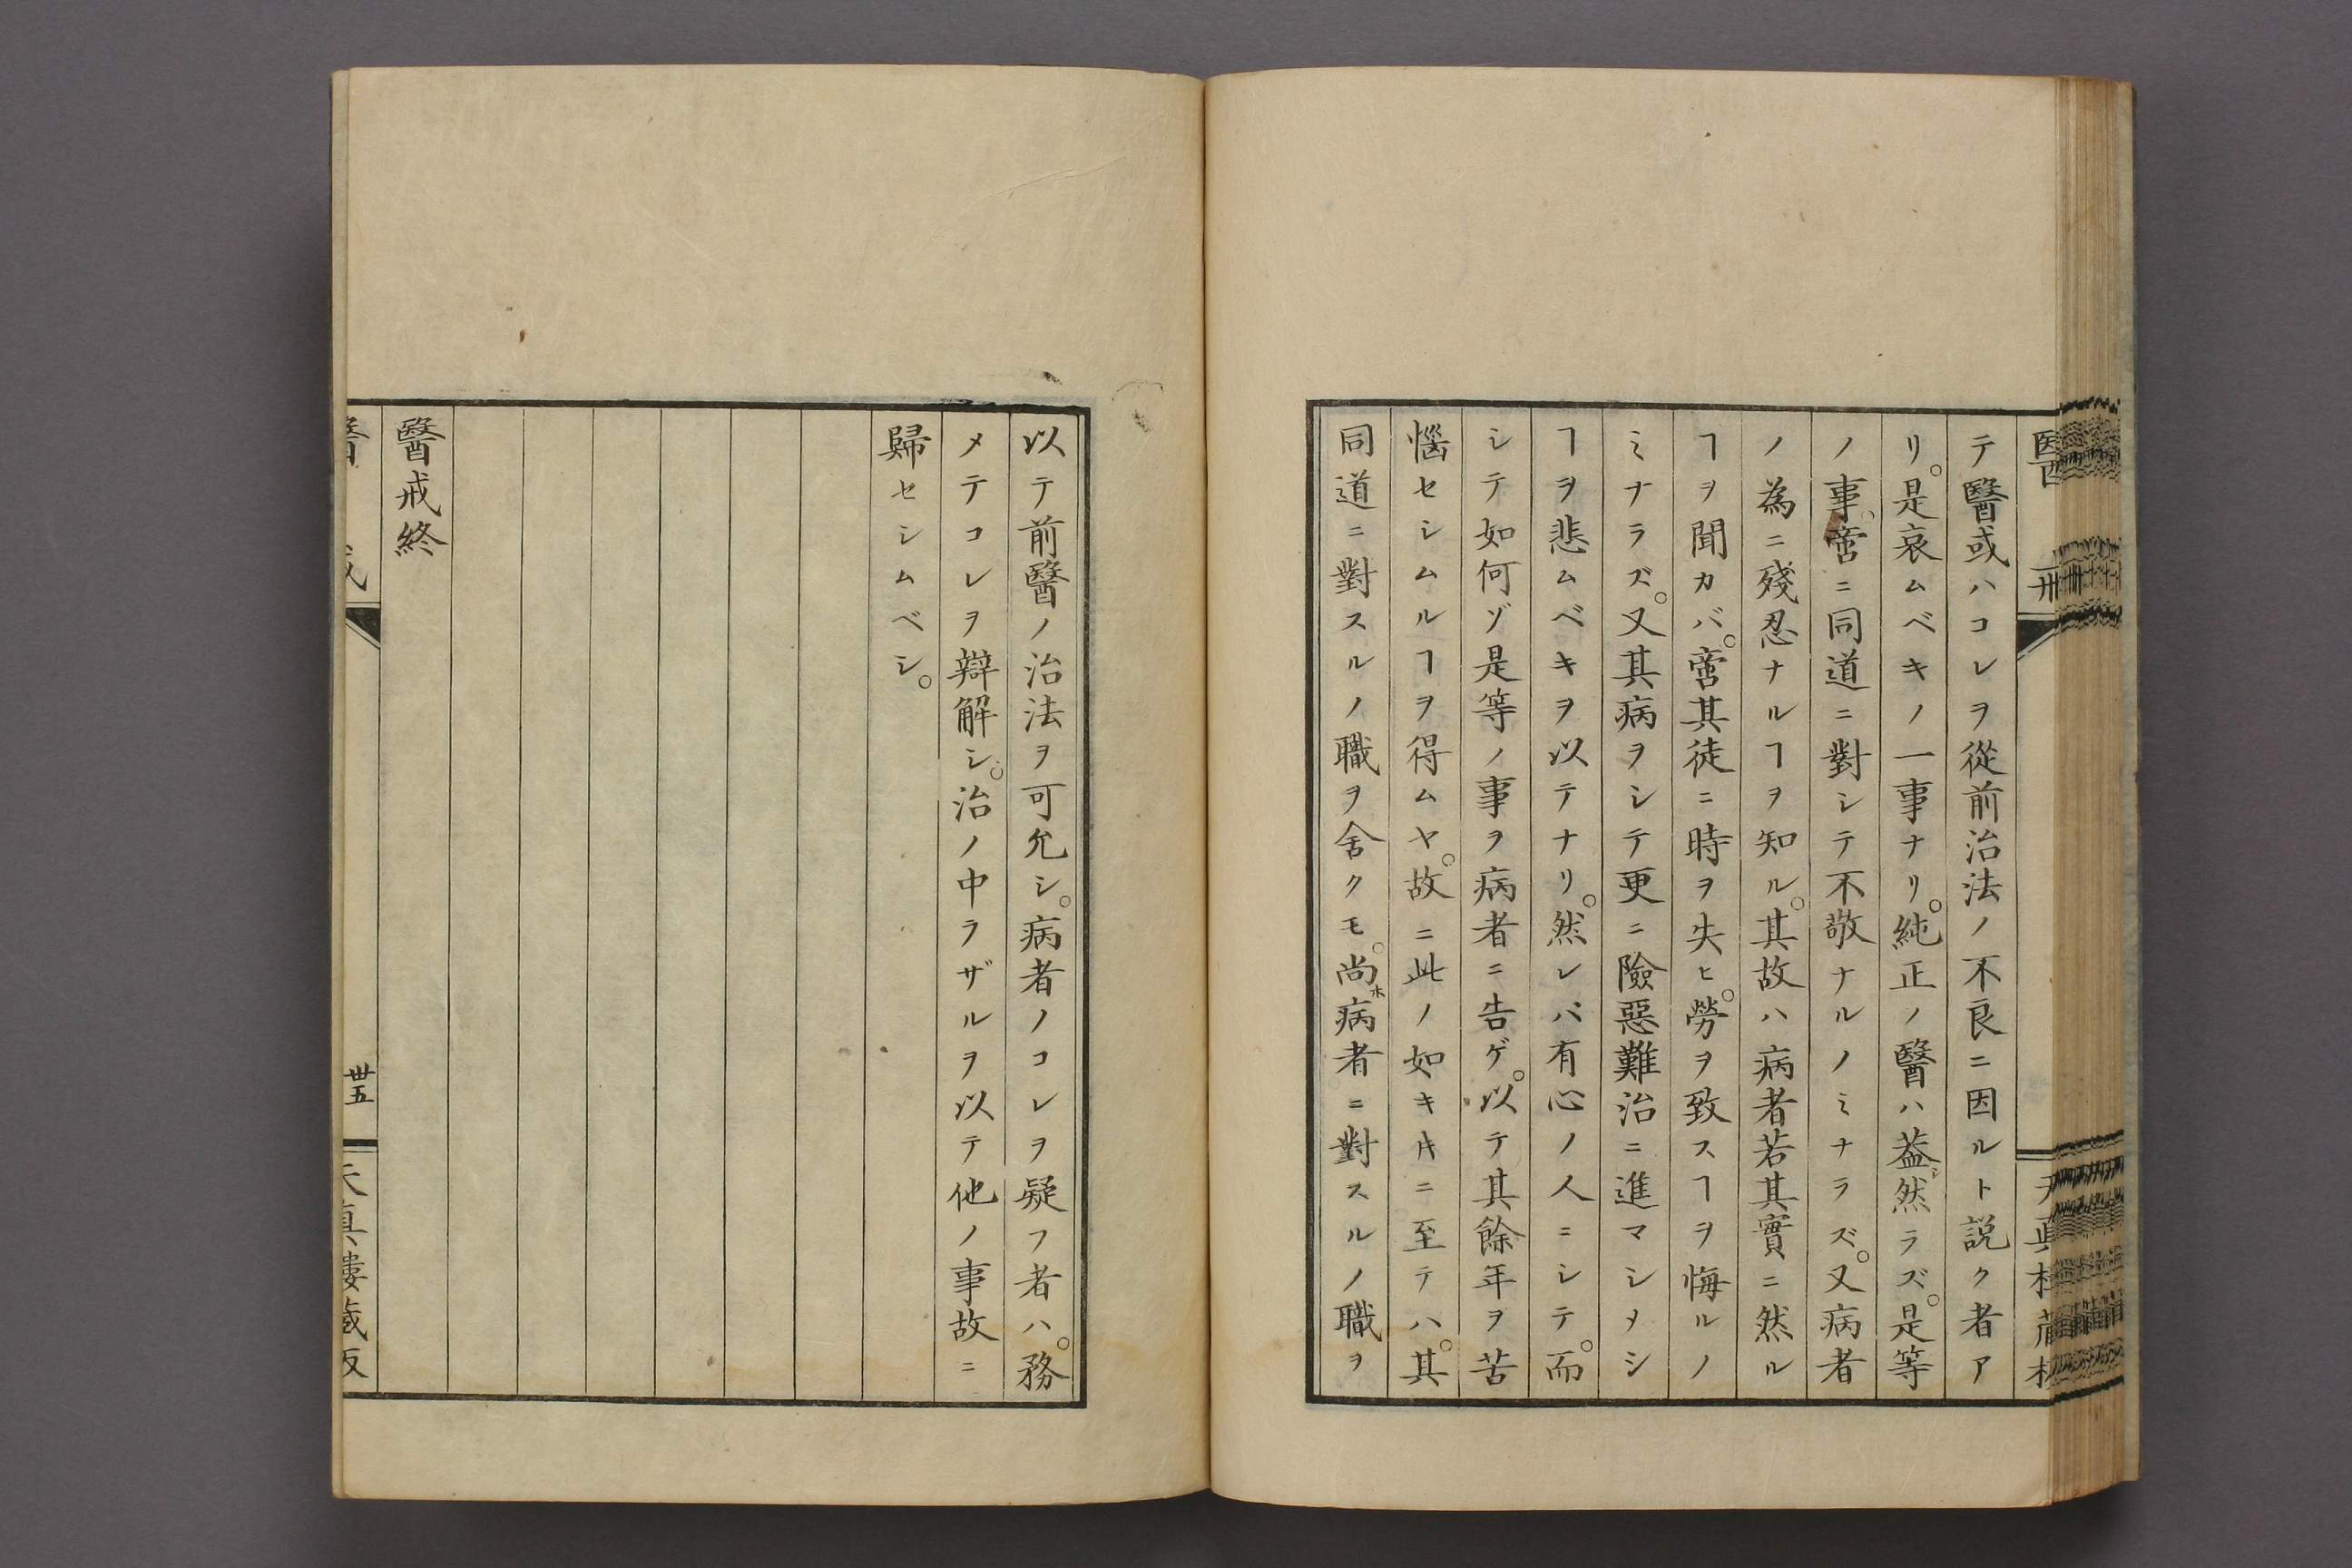 テ醫或ハコレヲ從前治法ノ不良ニ因ルト説ク者ア
リ。是哀ムベキノ一事ナリ。純正ノ醫ハ葢シ然ラズ。是等
ノ事。啻ニ同道ニ對シテ不敬ナルノミナラズ。又病者
ノ為ニ殘忍ナルヿヲ知ル。其故ハ病者若其實ニ然ル
ヿヲ聞カバ。啻其徒ニ時ヲ失ヒ。勞ヲ致スヿヲ悔ルノ
ミナラズ。又其病ヲシテ更ニ險惡難治ニ進マシメシ
ヿヲ悲ムベキヲ以テナリ。然レバ有心ノ人ニシテ。而
シテ如何ゾ是等ノ事ヲ病者ニ告ゲ。以テ其餘年ヲ苦
惱セシムルヿヲ得ムヤ。故ニ此ノ如キキニ至テハ。其
同道ニ對スルノ職ヲ舍クモ。尚ホ病者ニ對スルノ職ヲ
以テ前醫ノ治法ヲ可允シ。病者ノコレヲ疑フ者ハ。務
メテコレヲ辯解シ。治ノ中ラザルヲ以テ他ノ事故ニ
歸セシムベシ。
醫戒終
醫戒
卅五
天真樓藏版